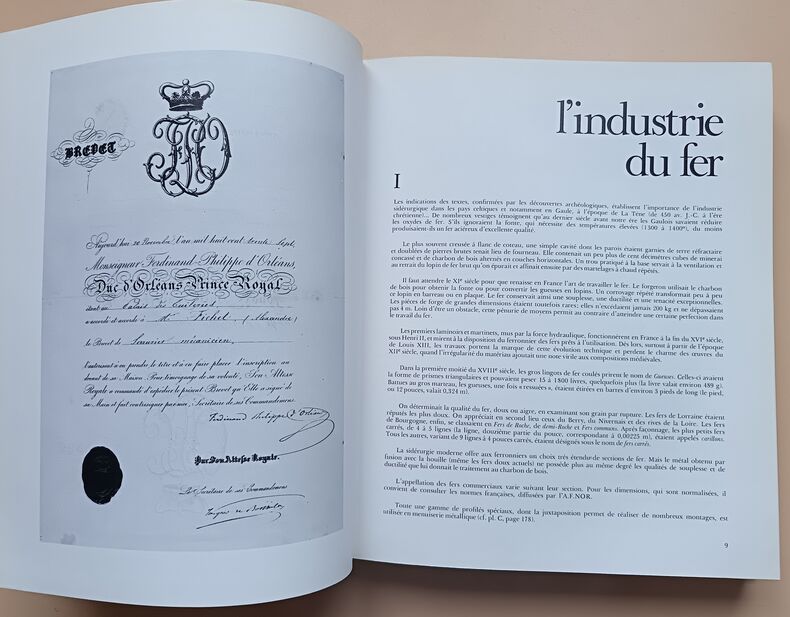 BREVET
Aujourd'hui 20 Novembre L'an mil huit cent trente Sept,
Monseigneur Ferdinand-Philippe d'Orléans,
Duc d'Orléans Prince Royal,
étant au Palais des Tuileries
a accordé et accorde à Mr. Fichet (Alexandre)
le Brevet de Serrurier mécanicien,
l'autorisant à en prendre le titre et à en faire placer l'inscription au
devant de sa Maison. Pour témoignage de sa volonté, Son Altesse
Royale a commandé d'expédier le présent Brevet qu'Elle a signé de
sa Main et fait contresigner par moi, Secrétaire de ses Commandemens.
Ferdinand Philippe d'Orléans
Par Son Altesse Royale.
Le Secrétaire de ses Commandemens
l'industrie
du fer
I
Les indications des textes, confirmées par les découvertes archéologiques, établissent l'importance de l'industrie
sidérurgique dans les pays celtiques et notamment en Gaule, à l'époque de La Tène (de 450 av. J.-C. à l'ère
chrétienne)... De nombreux vestiges témoignent qu'au dernier siècle avant notre ère les Gaulois savaient réduire
les oxydes de fer. S'ils ignoraient la fonte, qui nécessite des températures élevées (1300 à 1400°), du moins
produisaient-ils un fer aciéreux d'excellente qualité.
Le plus souvent creusée à flanc de coteau, une simple cavité dont les parois étaient garnies de terre réfractaire
et doublées de pierres brutes tenait lieu de fourneau. Elle contenait un peu plus de cent décimètres cubes de minerai
concassé et de charbon de bois alternés en couches horizontales. Un trou pratiqué à la base servait à la ventilation et
au retrait du lopin de fer brut qu'on épurait et affinait ensuite par des martelages à chaud répétés.
Il faut attendre le XIe siècle pour que renaisse en France l'art de travailler le fer. Le forgeron utilisait le charbon
de bois pour obtenir la fonte ou pour convertir les gueuses en lopins. Un corroyage répété transformait peu à peu
ce lopin en barreau ou en plaque. Le fer conservait ainsi une souplesse, une ductilité et une ténacité exceptionnelles.
Les pièces de forge de grandes dimensions étaient toutefois rares: elles n'excédaient jamais 200 kg et ne dépassaient
pas 4 m. Loin d'être un obstacle, cette pénurie de moyens permit au contraire d'atteindre une certaine perfection dans
le travail du fer.
Les premiers laminoirs et martinets, mus par la force hydraulique, fonctionnèrent en France à la fin du XVIe siècle,
sous Henri II, et mirent à la disposition du ferronnier des fers prêts à l'utilisation. Dès lors, surtout à partir de l'époque
de Louis XIII, les travaux portent la marque de cette évolution technique et perdent le charme des œuvres du
XIIe siècle, quand l'irrégularité du matériau ajoutait une note virile aux compositions médiévales.
Dans la première moitié du XVIIIe siècle, les gros lingots de fer coulés prirent le nom de Gueuses. Celles-ci avaient
la forme de prismes triangulaires et pouvaient peser 15 à 1800 livres, quelquefois plus (la livre valait environ 489 g).
Battues au gros marteau, les gueuses, une fois «ressuées», étaient étirées en barres d'environ 3 pieds de long (le pied,
ou 12 pouces, valait 0,324 m).
On déterminait la qualité du fer, doux ou aigre, en examinant son grain par rupture. Les fers de Lorraine étaient
réputés les plus doux. On appréciait en second lieu ceux du Berry, du Nivernais et des rives de la Loire. Les fers
de Bourgogne, enfin, se classaient en Fers de Roche, de demi-Roche et Fers communs. Après façonnage, les plus petits fers
carrés, de 4 à 5 lignes (la ligne, douzième partie du pouce, correspondant à 0,00225 m), étaient appelés carillons.
Tous les autres, variant de 9 lignes à 4 pouces carrés, étaient désignés sous le nom de fers carrés.
La sidérurgie moderne offre aux ferronniers un choix très étendu de sections de fer. Mais le métal obtenu par
fusion avec la houille (même les fers doux actuels) ne possède plus au même degré les qualités de souplesse et de
ductilité que lui donnait le traitement au charbon de bois.
L'appellation des fers commerciaux varie suivant leur section. Pour les dimensions, qui sont normalisées, il
convient de consulter les normes françaises, diffusées par l'A.F.NOR.
Toute une gamme de profilés spéciaux, dont la juxtaposition permet de réaliser de nombreux montages, est
utilisée en menuiserie métallique (cf. pl. C, page 178).
9